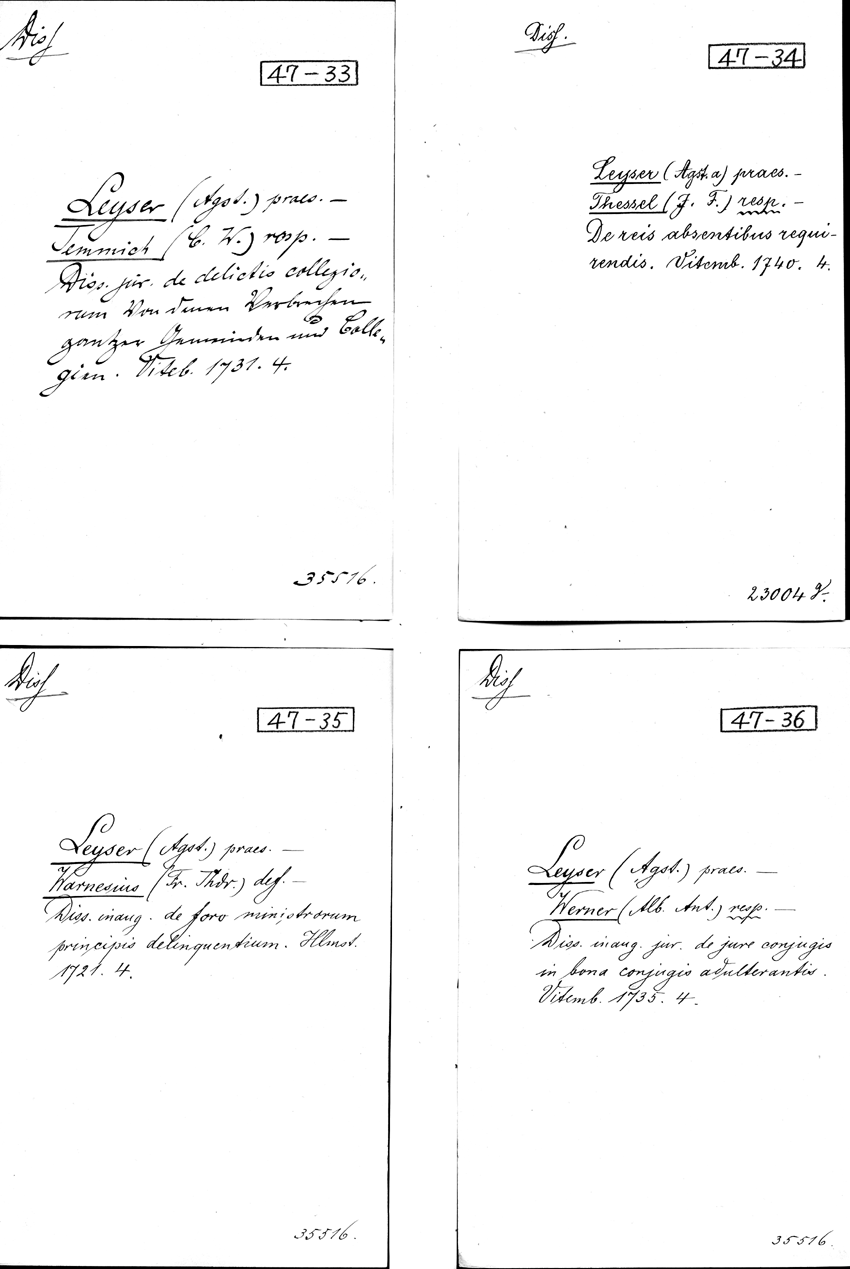 Diss
47-33
Leyser (Agst.) praes. —
Temmich (C. W.) resp. —
Diss. jur. de delictis collegio„
rum Von denen Verbrechen
gantzer Gemeinden und Colle„
gien. Viteb. 1731. 4.
35516.
Diss.
47-34
Leyser (Agst. a) praes. —
Thessel (J. F.) resp. —
De reis absentibus requi-
rendis. Vitemb. 1740. 4.
23004 g.
Diss
47-35
Leyser (Agst.) praes. —
Warnesius (Fr. Thdr.) def. —
Diss. inaug. de foro ministrorum
principis delinquentium. Hlmst.
1721. 4.
35516.
Diss
47-36
Leyser (Agst.) praes. —
Werner (Alb. Ant.) resp. —
Diss. inaug. jur. de jure conjugis
in bona conjugis adulterantis.
Vitemb. 1735. 4.
35516.